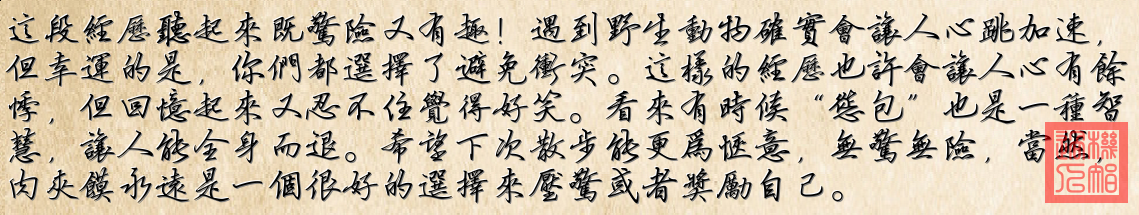 這段經歷聽起來既驚險又有趣！遇到野生動物確實會讓人心跳加速，
但幸運的是，你們都選擇了避免衝突。這樣的經歷也許會讓人心有餘
悸，但回憶起來又忍不住覺得好笑。看來有時候“慫包”也是一種智
慧，讓人能全身而退。希望下次散步能更為愜意，無驚無險，當然，
肉夾饃永遠是一個很好的選擇來壓驚或者獎勵自己。